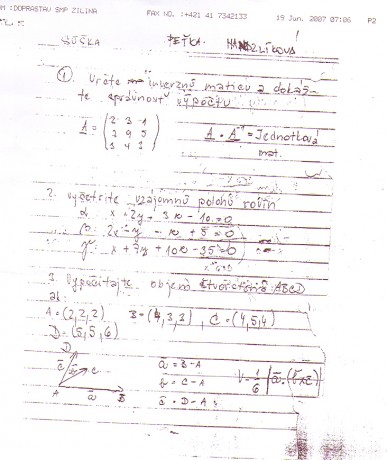 M :DOPRASTAV SMP ZILINA FAX NO. :+421 41 7342133 19 Jun. 2007 07:06 P2
SÚČKA PEŤKA HANDZLÍKOVÁ
1. Určte inverznú maticu a dokáž-
te správnosť výpočtu
A = ( 2 3 -1
9 5
3 4 3 )
A · A⁻¹ = Jednotková
mat.
2. Vyšetrite vzájomnú polohu rovín
x + 2y - 3z - 10 = 0
β 2x - y - z + 5 = 0
γ x + 7y + 10z - 35 = 0
3. Vypočítajte objem štvorstena ABCD
ak
A = (2,2,2) B = (4,3,3), C = (4,5,4)
D = (5,5,6)
D
c
A a B
a = B - A
b = C - A
c = D - A
V = 1/6 |a · (b × c)|